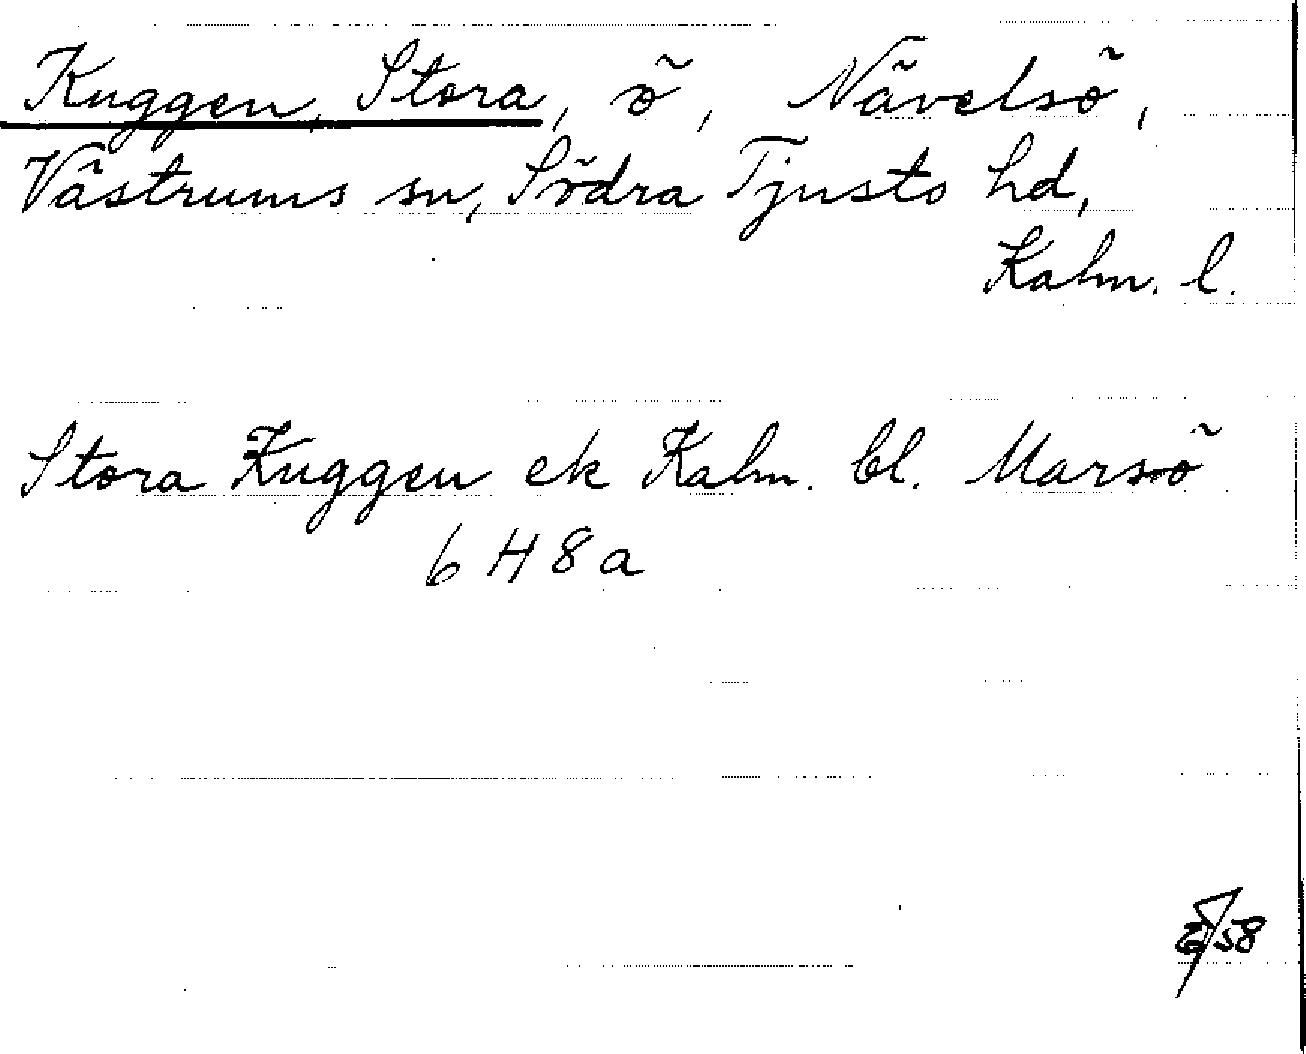 Kuggen, Stora, ö, Nävelsö,
Västrums sn, Södra Tjusts hd,
Kalm. l.
Stora Kuggen ek Kalm. bl. Marsö
6 H 8 a
58